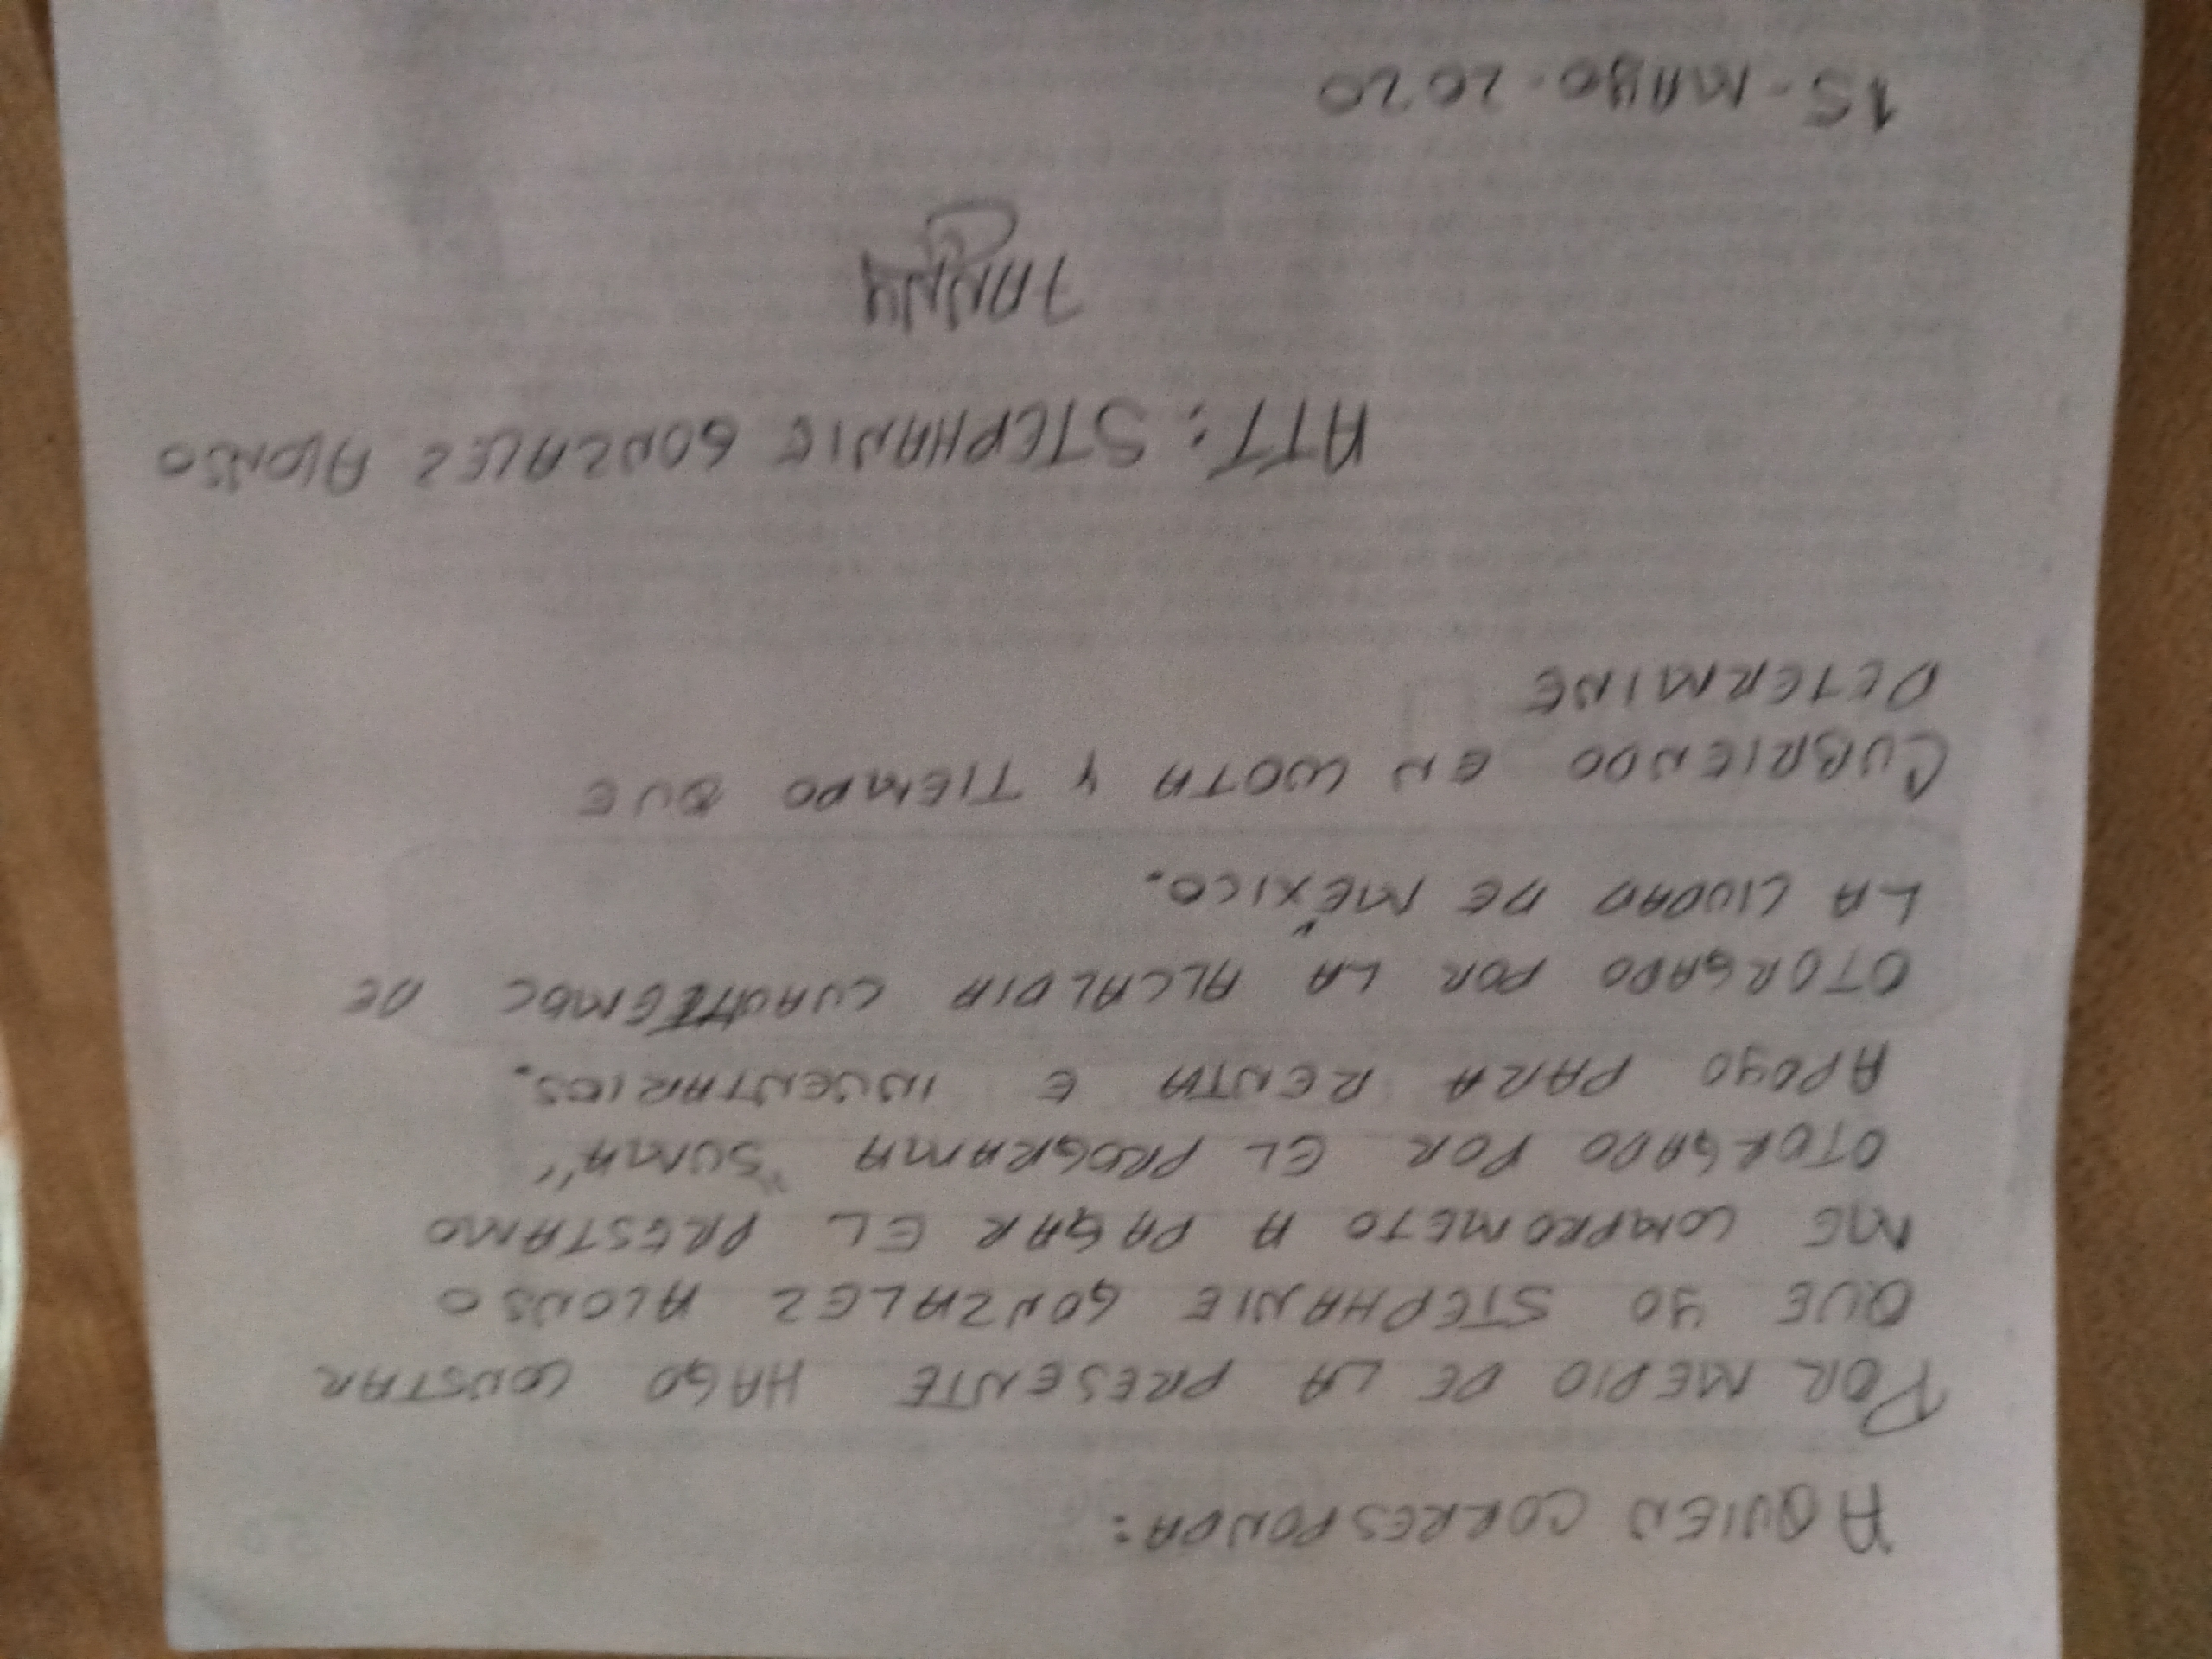 A QUIEN CORRESPONDA:
POR MEDIO DE LA PRESENTE HAGO CONSTAR
QUE YO STEPHANIE GONZALEZ ALONSO
ME COMPROMETO A PAGAR EL PRESTAMO
OTORGADO POR EL PROGRAMA "SUMA",
APOYO PARA RENTA E INVENTARIOS.
OTORGADO POR LA ALCALDIA CUAUHTEGMOC DE
LA CIUDAD DE MÉXICO.
CUBRIENDO EN CUOTA Y TIEMPO QUE
DETERMINE
ATT: STEPHANIE GONZALEZ ALONSO
15-MAYO-2020